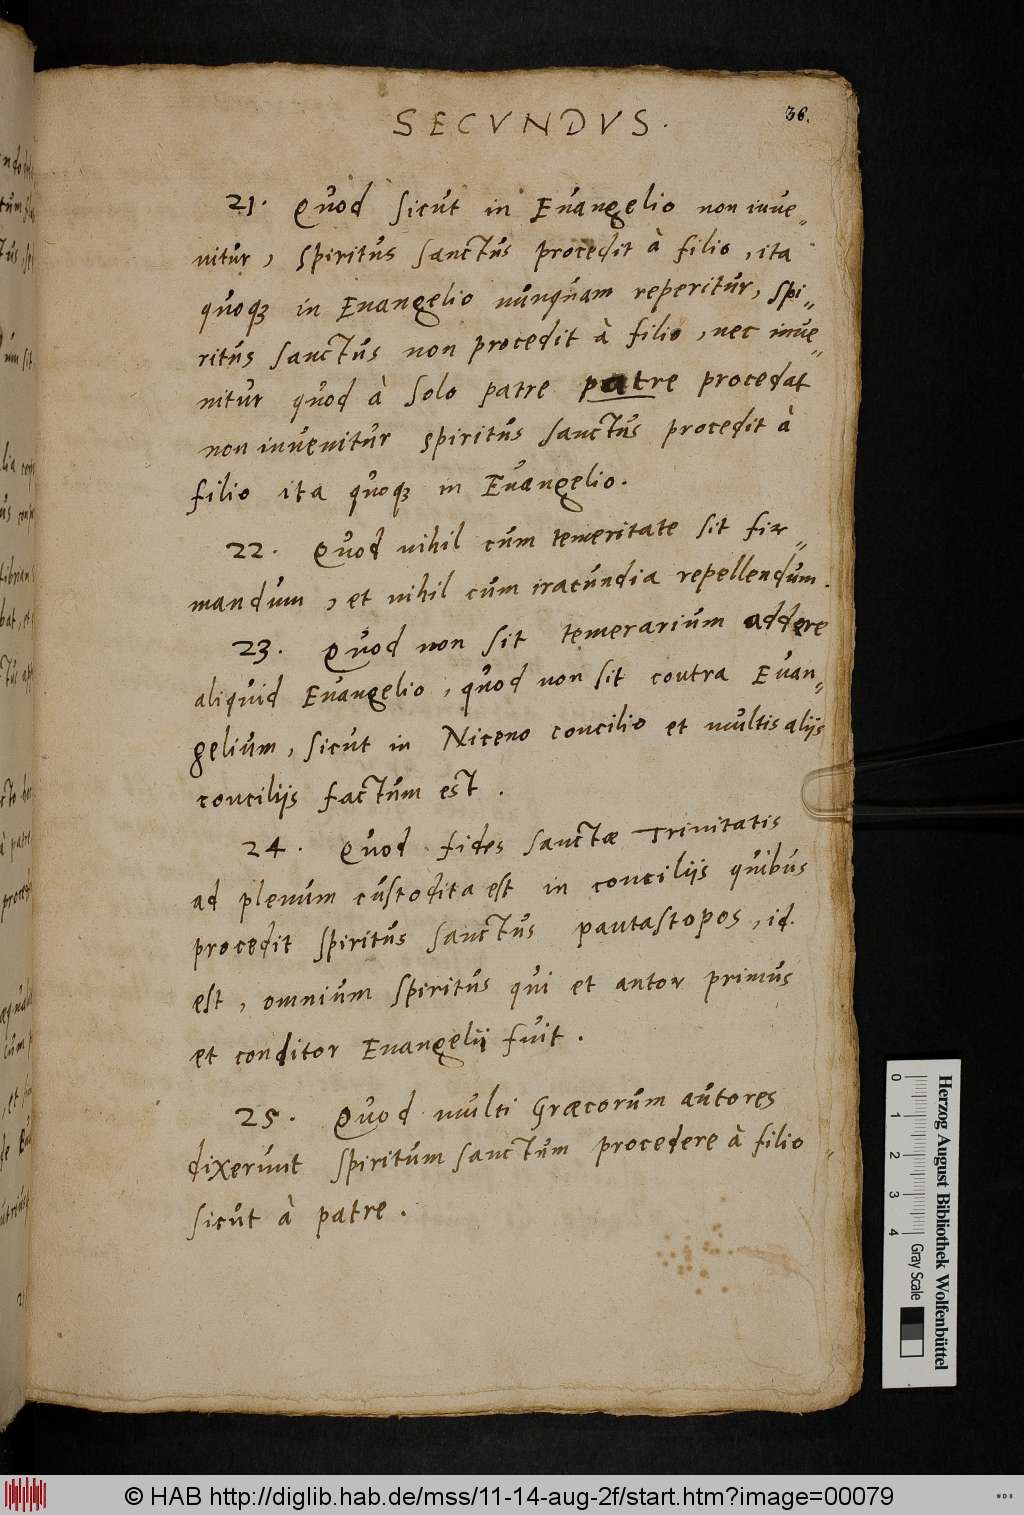 SECVNDVS.
36.
21. Quod sicut in Euangelio non inue„
nitur, spiritus sanctus procedit à filio, ita
quoqȝ in Euangelio nunquam reperitur, spi„
ritus sanctus non procedit à filio, nec inue„
nitur quod à solo patre patre procedat
non inuenitur spiritus sanctus procedit à
filio ita quoqȝ in Euangelio.
22. Quod nihil cum temeritate sit fir„
mandum, et nihil cum iracundia repellendum.
23. Quod non sit temerarium addere
aliquid Euangelio, quod non sit contra Euan„
gelium, sicut in Niceno concilio et multis alijs
concilijs factum est.
24. Quod fides sanctæ Trinitatis
ad plenum custodita est in concilijs quibus
procedit spiritus sanctus pantastopos, id.
est, omnium spiritus qui et antor primus
et conditor Euangelij fuit.
25. Quod multi Græcorum autores
dixerunt spiritum sanctum procedere à filio
sicut à patre.
0 1 2 3 4 Gray Scale
Herzog August Bibliothek Wolfenbüttel
© HAB http://diglib.hab.de/mss/11-14-aug-2f/start.htm?image=00079